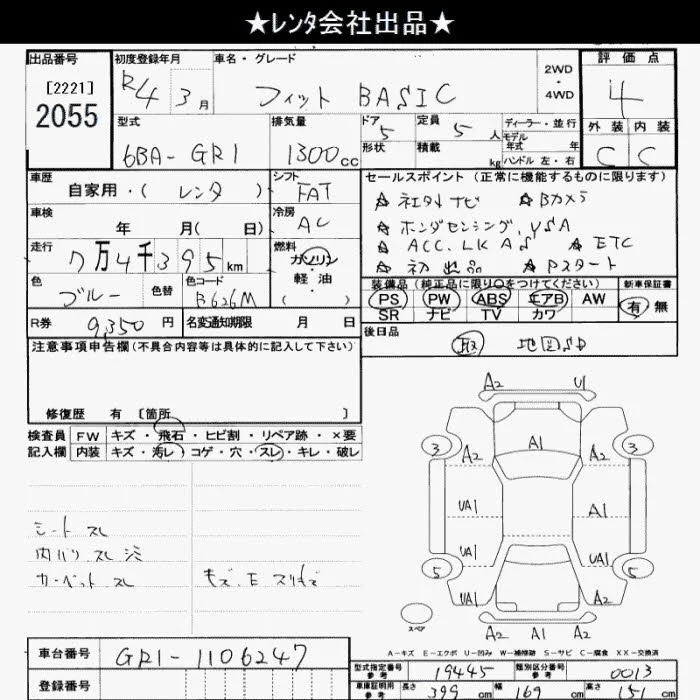 ★レンタ会社出品★
出品番号 初度登録年月 車名・グレード 評価点
[2221] 2055 R4 3月 フィット BASIC 2WD・4WD 4
型式 排気量 ドア 5 定員 5 人 ディーラー・並行 外装 内装
モデル年式 年
6BA-GR1 1300cc 形状 積載 kg ハンドル 左・右 C C
車歴 自家用・( レンタ ) シフト FAT セールスポイント (正常に機能するものに限ります)
☆社外ナビ ☆Bカメラ
車検 年 月( 日) 冷房 AC ☆ホンダセンシング, VSA
☆ACC. LKAS ☆ETC
走行 7万4千395km 燃料 ガソリン・軽油 ( ) ☆初出品 ☆Pスタート
色 ブルー 色替 色コード B626M 装備品 (純正品に限り○をつけてください) 新車保証書
PS PW ABS エアB AW 有 無
SR ナビ TV カワ
R券 9,350円 名変通知期限 月 日 後日品
取 地図SD
注意事項申告欄 (不具合内容等は具体的に記入して下さい)
修復歴 有 〔箇所 〕
検査員 FW キズ・飛石・ヒビ割・リペア跡・×要
記入欄 内装 キズ・汚レ・コゲ・穴・スレ・キレ・破レ
シート スレ
内ハリ スレ シミ
カーペット スレ キズ.E スリキズ
A2 U1
3 A2 A1 A2 3
UA1 A1
UA1 UA1
5 5
UA1 A2
スペア A2 A1 A2
A－キズ E－エクボ U－凹み W－補修跡 S－サビ C－腐食 XX－交換済
車台番号 GR1-1106247 型式指定番号 参考 19445 類別区分番号 参考 0013
登録番号 車庫証明用 参考 長さ 399 cm 幅 169 cm 高さ 151 cm